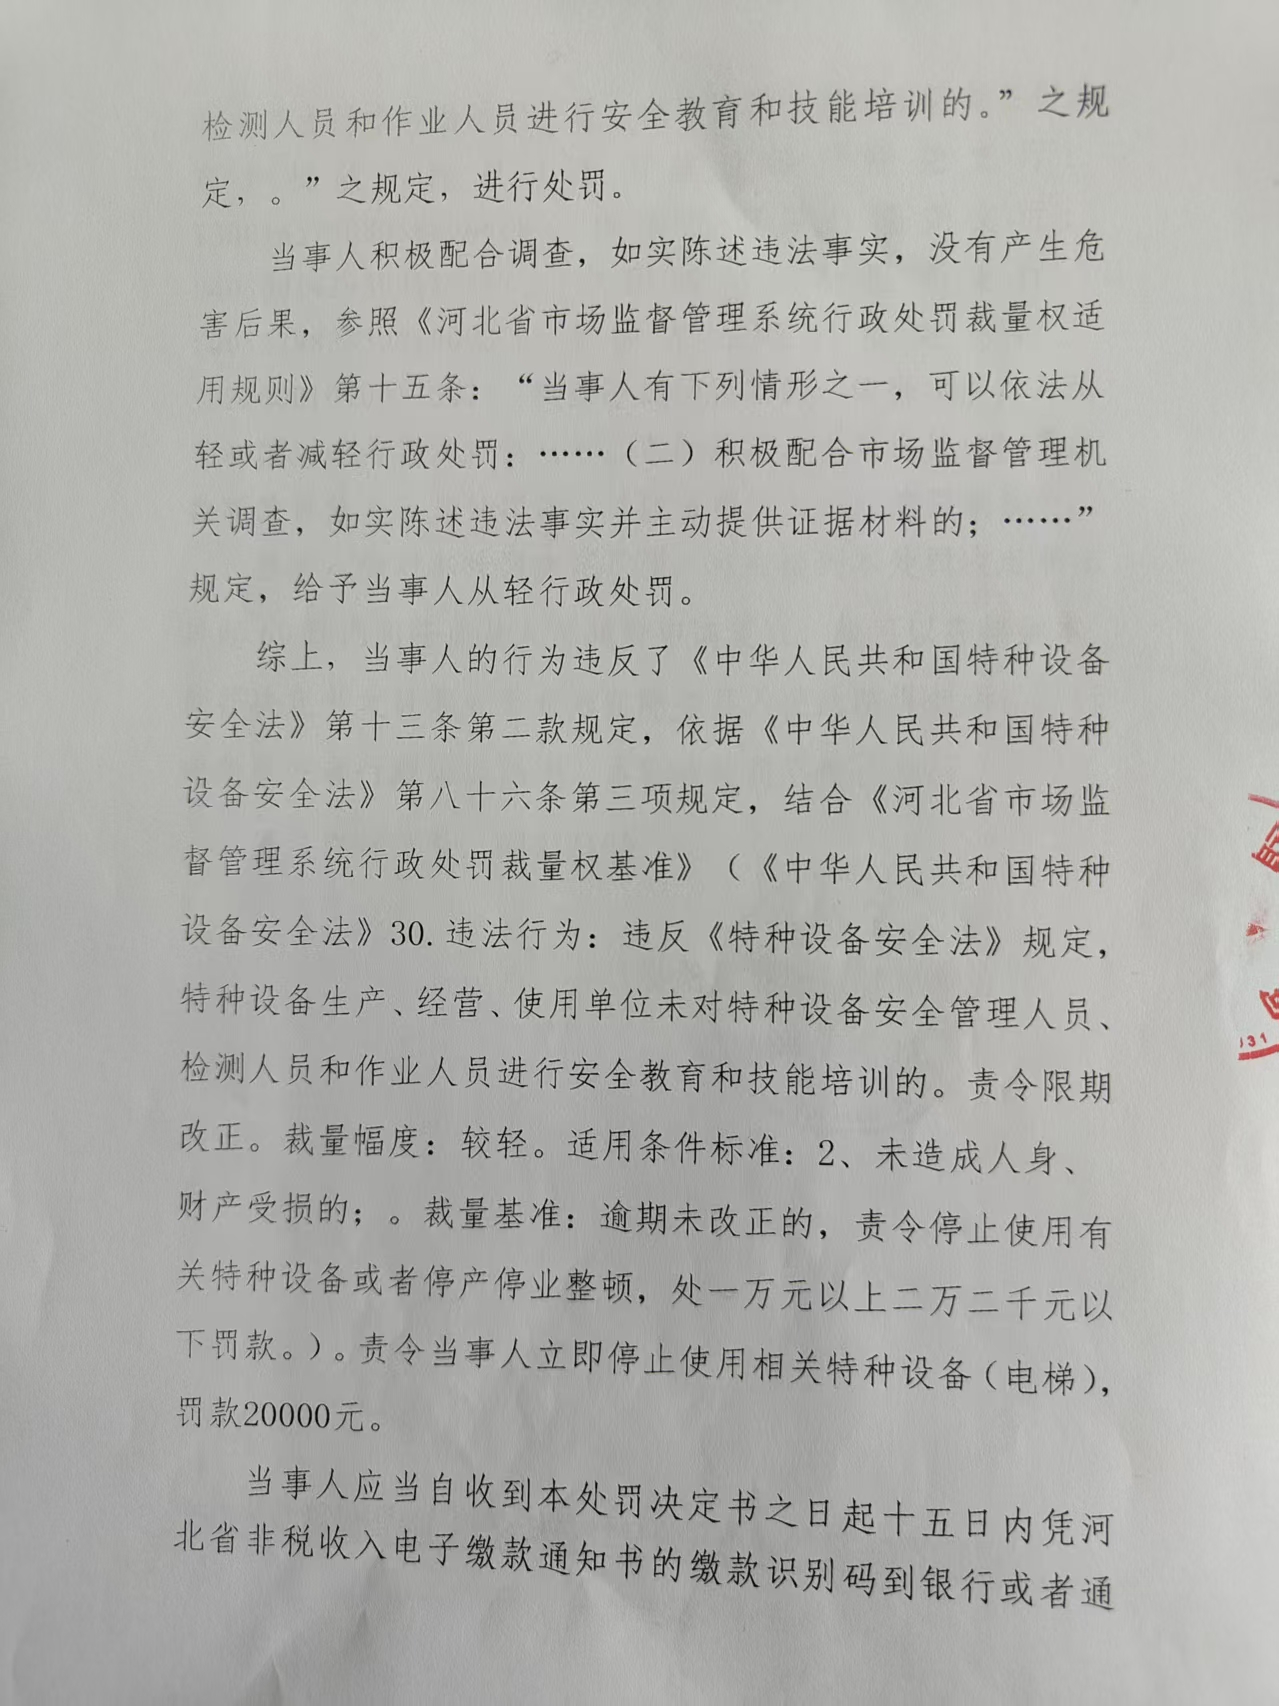 检测人员和作业人员进行安全教育和技能培训的。”之规
定，。”之规定，进行处罚。
当事人积极配合调查，如实陈述违法事实，没有产生危
害后果，参照《河北省市场监督管理系统行政处罚裁量权适
用规则》第十五条：“当事人有下列情形之一，可以依法从
轻或者减轻行政处罚：……（二）积极配合市场监督管理机
关调查，如实陈述违法事实并主动提供证据材料的；……”
规定，给予当事人从轻行政处罚。
综上，当事人的行为违反了《中华人民共和国特种设备
安全法》第十三条第二款规定，依据《中华人民共和国特种
设备安全法》第八十六条第三项规定，结合《河北省市场监
督管理系统行政处罚裁量权基准》（《中华人民共和国特种
设备安全法》30.违法行为：违反《特种设备安全法》规定，
特种设备生产、经营、使用单位未对特种设备安全管理人员、
检测人员和作业人员进行安全教育和技能培训的。责令限期
改正。裁量幅度：较轻。适用条件标准：2、未造成人身、
财产受损的；。裁量基准：逾期未改正的，责令停止使用有
关特种设备或者停产停业整顿，处一万元以上二万二千元以
下罚款。）。责令当事人立即停止使用相关特种设备（电梯），
罚款20000元。
当事人应当自收到本处罚决定书之日起十五日内凭河
北省非税收入电子缴款通知书的缴款识别码到银行或者通